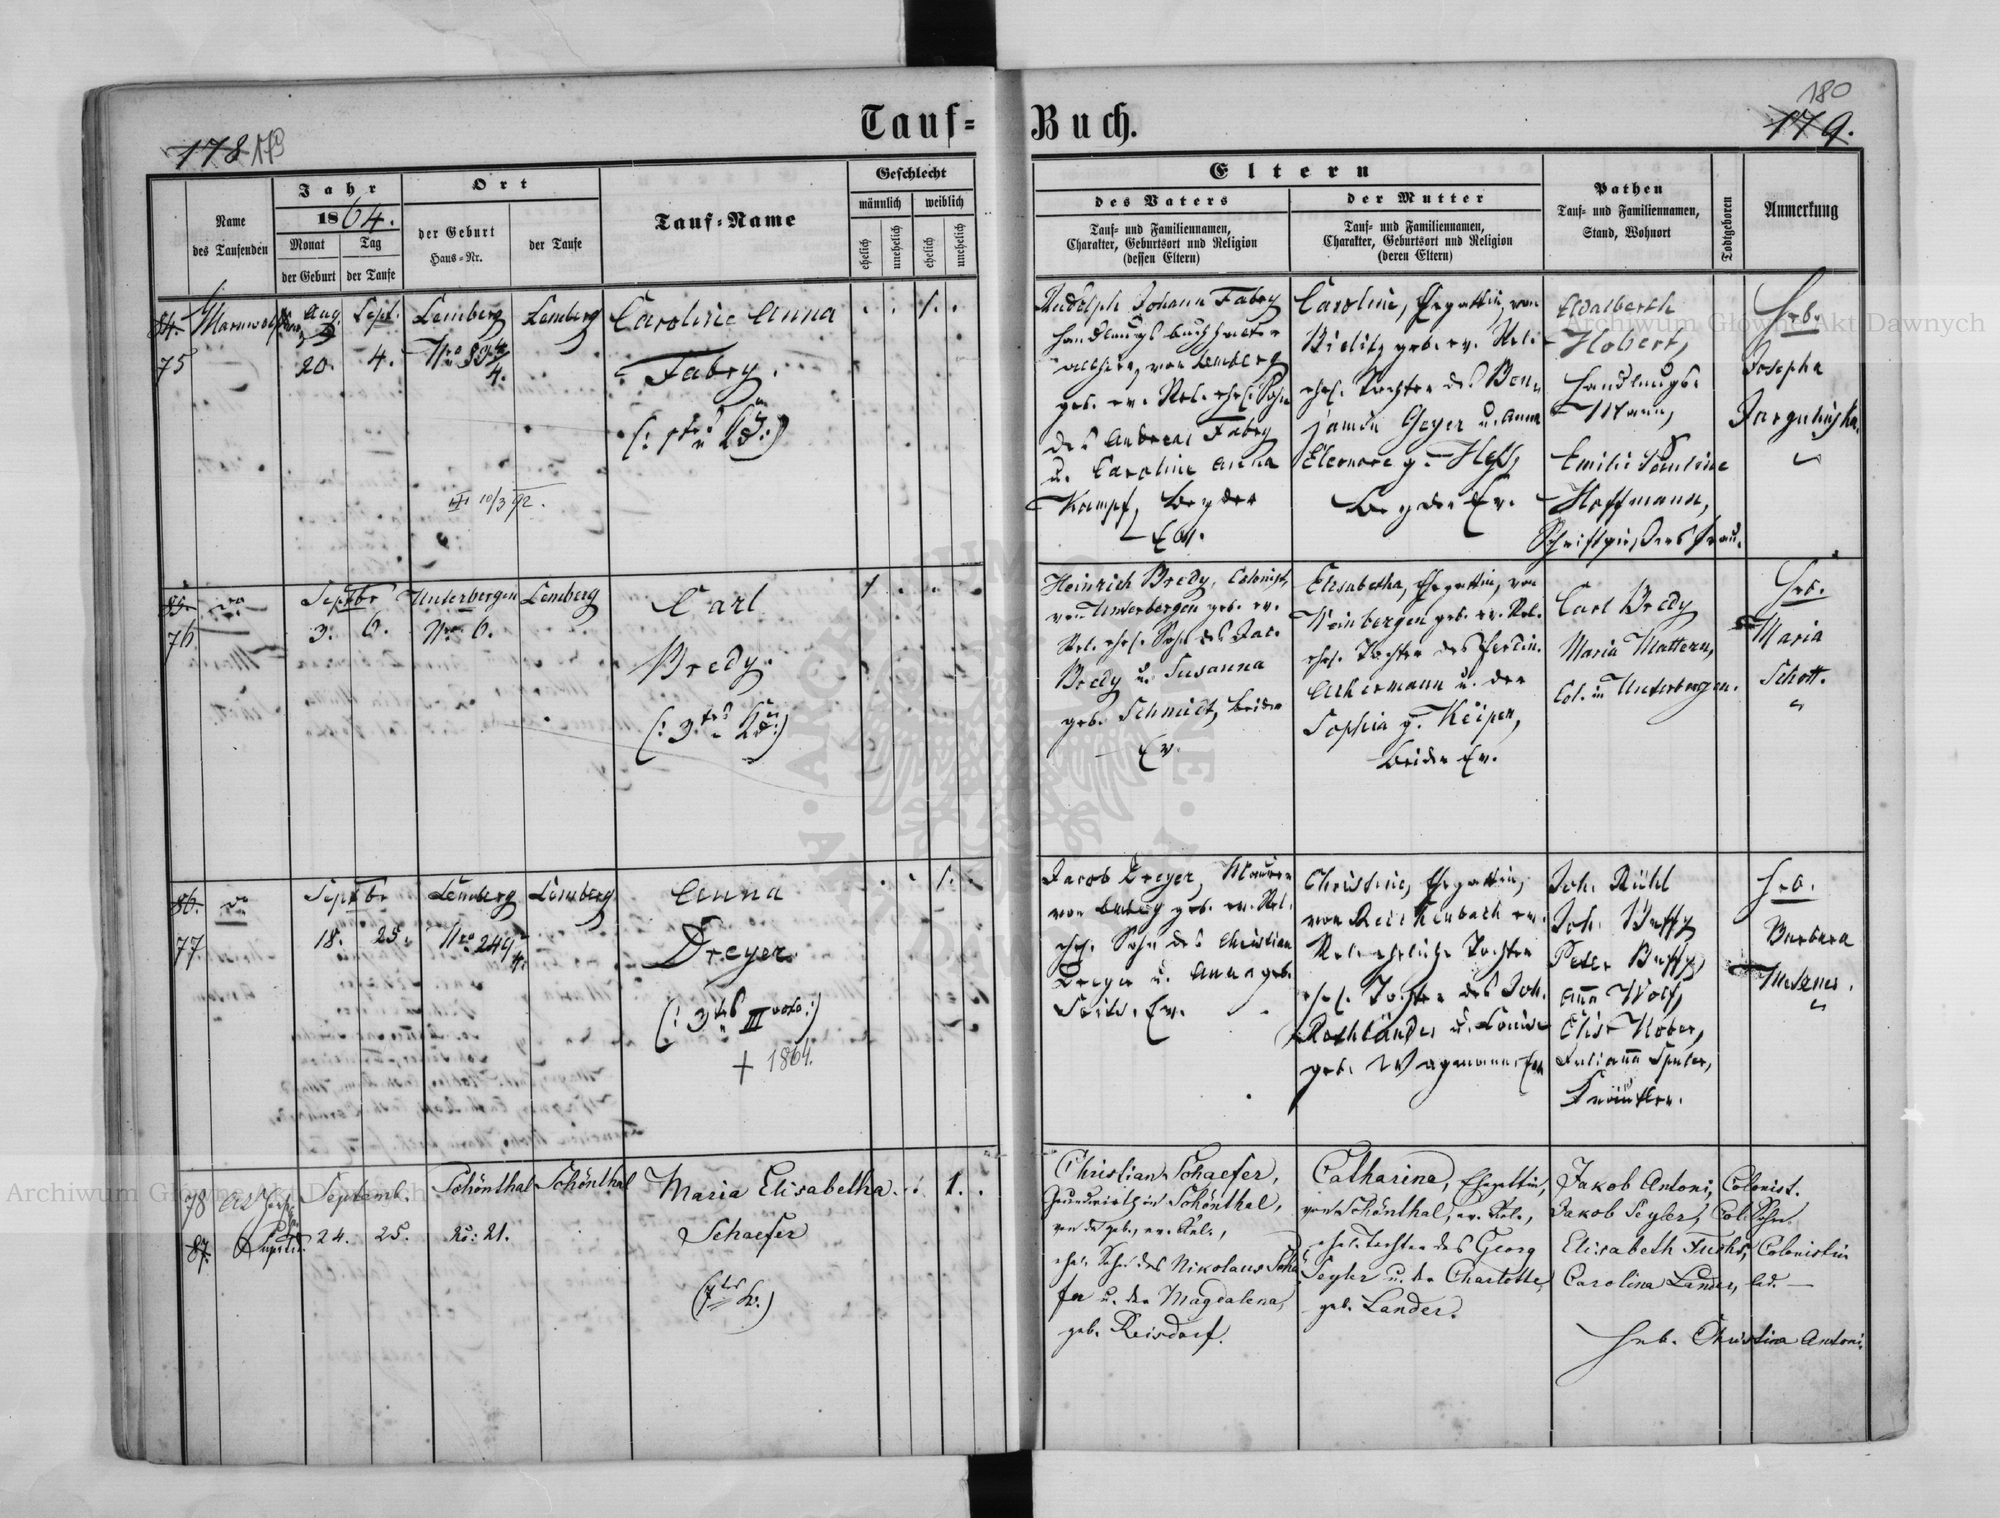 Tauf=
Buch.
178 179
180
179.
Name
des Taufenden
Jahr
1864.
Monat
der Geburt
Tag
der Taufe
Ort
der Geburt
Haus=Nr.
der Taufe
Tauf=Name
Geschlecht
männlich
weiblich
ehelich
unehelich
ehelich
unehelich
Eltern
des Vaters
Tauf= und Familiennamen,
Charakter, Geburtsort und Religion
(dessen Eltern)
der Mutter
Tauf= und Familiennamen,
Charakter, Geburtsort und Religion
(deren Eltern)
Pathen
Tauf= und Familiennamen,
Stand, Wohnort
Todtgeboren
Anmerkung
84.
75
Aug.
20.
Sept.
4.
Lemberg
Nro
4.
Lemberg
Caroline Anna
Fabry.
10/3 92.
1.
Rudolph Johann Fabry
Handlungsbuchhalter
von Lemberg
geb. ev. Rel. ehel. Sohn
des Andreas Fabry
u. Caroline Anna
Kampf, beyder
Ev.
Caroline, Ehegattin, von
Bielitz geb. ev. Rel.
ehel. Tochter des Ben
jamin Geyer u. Anna
Eleonore g. Heß,
beyder Ev.
Adalberth
Hobert,
Handlungs
Mann,
Emilie Pauline
Hoffmann,
Schriftgießers Frau.
Heb.
Josepha
85.
76
Septbr
3. 6.
Unterbergen
Nro 6.
Lemberg
Carl
Bredy.
1
Heinrich Bredy, Colonist,
von Unterbergen geb. ev.
Rel. ehel. Sohn des Jac.
Bredy u. Susanna
geb. Schmidt, beide
Ev.
Elisabetha, Ehegattin, von
Weinbergen geb. ev. Rel.
ehel. Tochter des Ferdin.
Ackermann u. der
Sophia g. Keiper,
beide Ev.
Carl Bredy
Maria Mattern,
Col. in Unterbergen.
Heb.
Maria
Schott.
86.
77.
Septbr
18. 25.
Lemberg
Nro 249
4.
Lemberg
Anna
Dreyer.
+ 1864.
1.
Jacob Dreyer, Maurer
von geb. ev. Rel.
ehel. Sohn des Christian
Dreyer u. Anna geb.
Seitz. Ev.
Christine, Ehegattin,
von Reichenbach ev.
Rel. eheliche Tochter
ehel. Tochter des Joh.
Rothländer u. Louise
geb. Wagemann, Ev.
Joh. Rühl
Joh. Buffy
Peter Buffy,
Anna Wolf,
Elis. Kober,
Julianna
Heb.
Barbara
78
87.
Septemb.
24. 25.
Schönthal
No: 21.
Schönthal
Maria Elisabetha
Schaefer
1.
Christian Schaefer,
Grundwirth in Schönthal,
von da geb., ev. Rel.,
ehel. Sohn des Nikolaus Schä
fer u. der Magdalena,
geb. Reisdorf.
Catharina, Ehegattin,
von Schönthal, ev. Rel.,
ehel. Tochter des Georg
Seyler u. der Charlotte,
geb. Lander.
Jakob Antoni, Colonist.
Jakob Seyler, Col. Sohn.
Elisabeth Fuchs, Colonistin
Carolina Lander, led.
Heb. Christina Antoni.
Archiwum Główne Akt Dawnych
Archiwum Główne Akt Dawnych